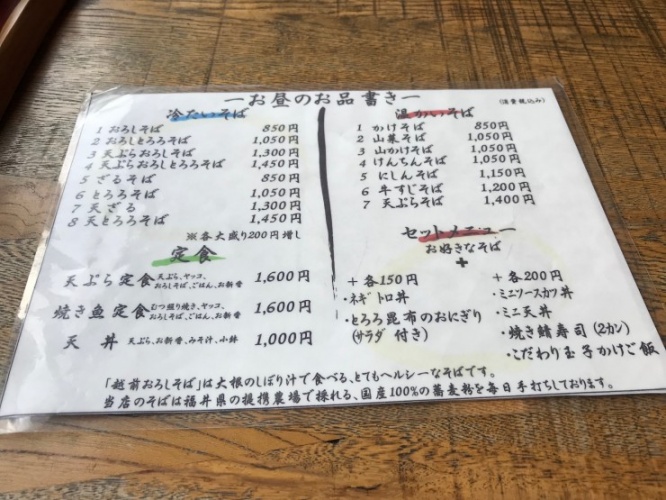 ーお昼のお品書きー
(消費税込み)
冷たいそば
1 おろしそば 850円
2 おろしとろろそば 1,050円
3 天ぷらおろしそば 1,300円
4 天ぷらおろしとろろそば 1,450円
5 ざるそば 850円
6 とろろそば 1,050円
7 天ざる 1,300円
8 天とろろそば 1,450円
※各大盛り200円増し
定食
天ぷら定食 天ぷら、ヤッコ、おろしそば、ごはん、お新香 1,600円
焼き魚定食 むつ照り焼き、ヤッコ、おろしそば、ごはん、お新香 1,600円
天丼 天ぷら、お新香、みそ汁、小鉢 1,000円
温かいそば
1 かけそば 850円
2 山菜そば 1,050円
3 山かけそば 1,050円
4 けんちんそば 1,050円
5 にしんそば 1,150円
6 牛すじそば 1,200円
7 天ぷらそば 1,400円
セットメニュー
お好きなそば
+
+各150円
・ネギトロ丼
・とろろ昆布のおにぎり
(サラダ付き)
+各200円
・ミニソースカツ丼
・ミニ天丼
・焼き鯖寿司(2カン)
・こだわり玉子かけご飯
「越前おろしそば」は大根のしぼり汁で食べる、とてもヘルシーなそばです。
当店のそばは福井県の提携農場で採れる、国産100%の蕎麦粉を毎日手打ちしております。